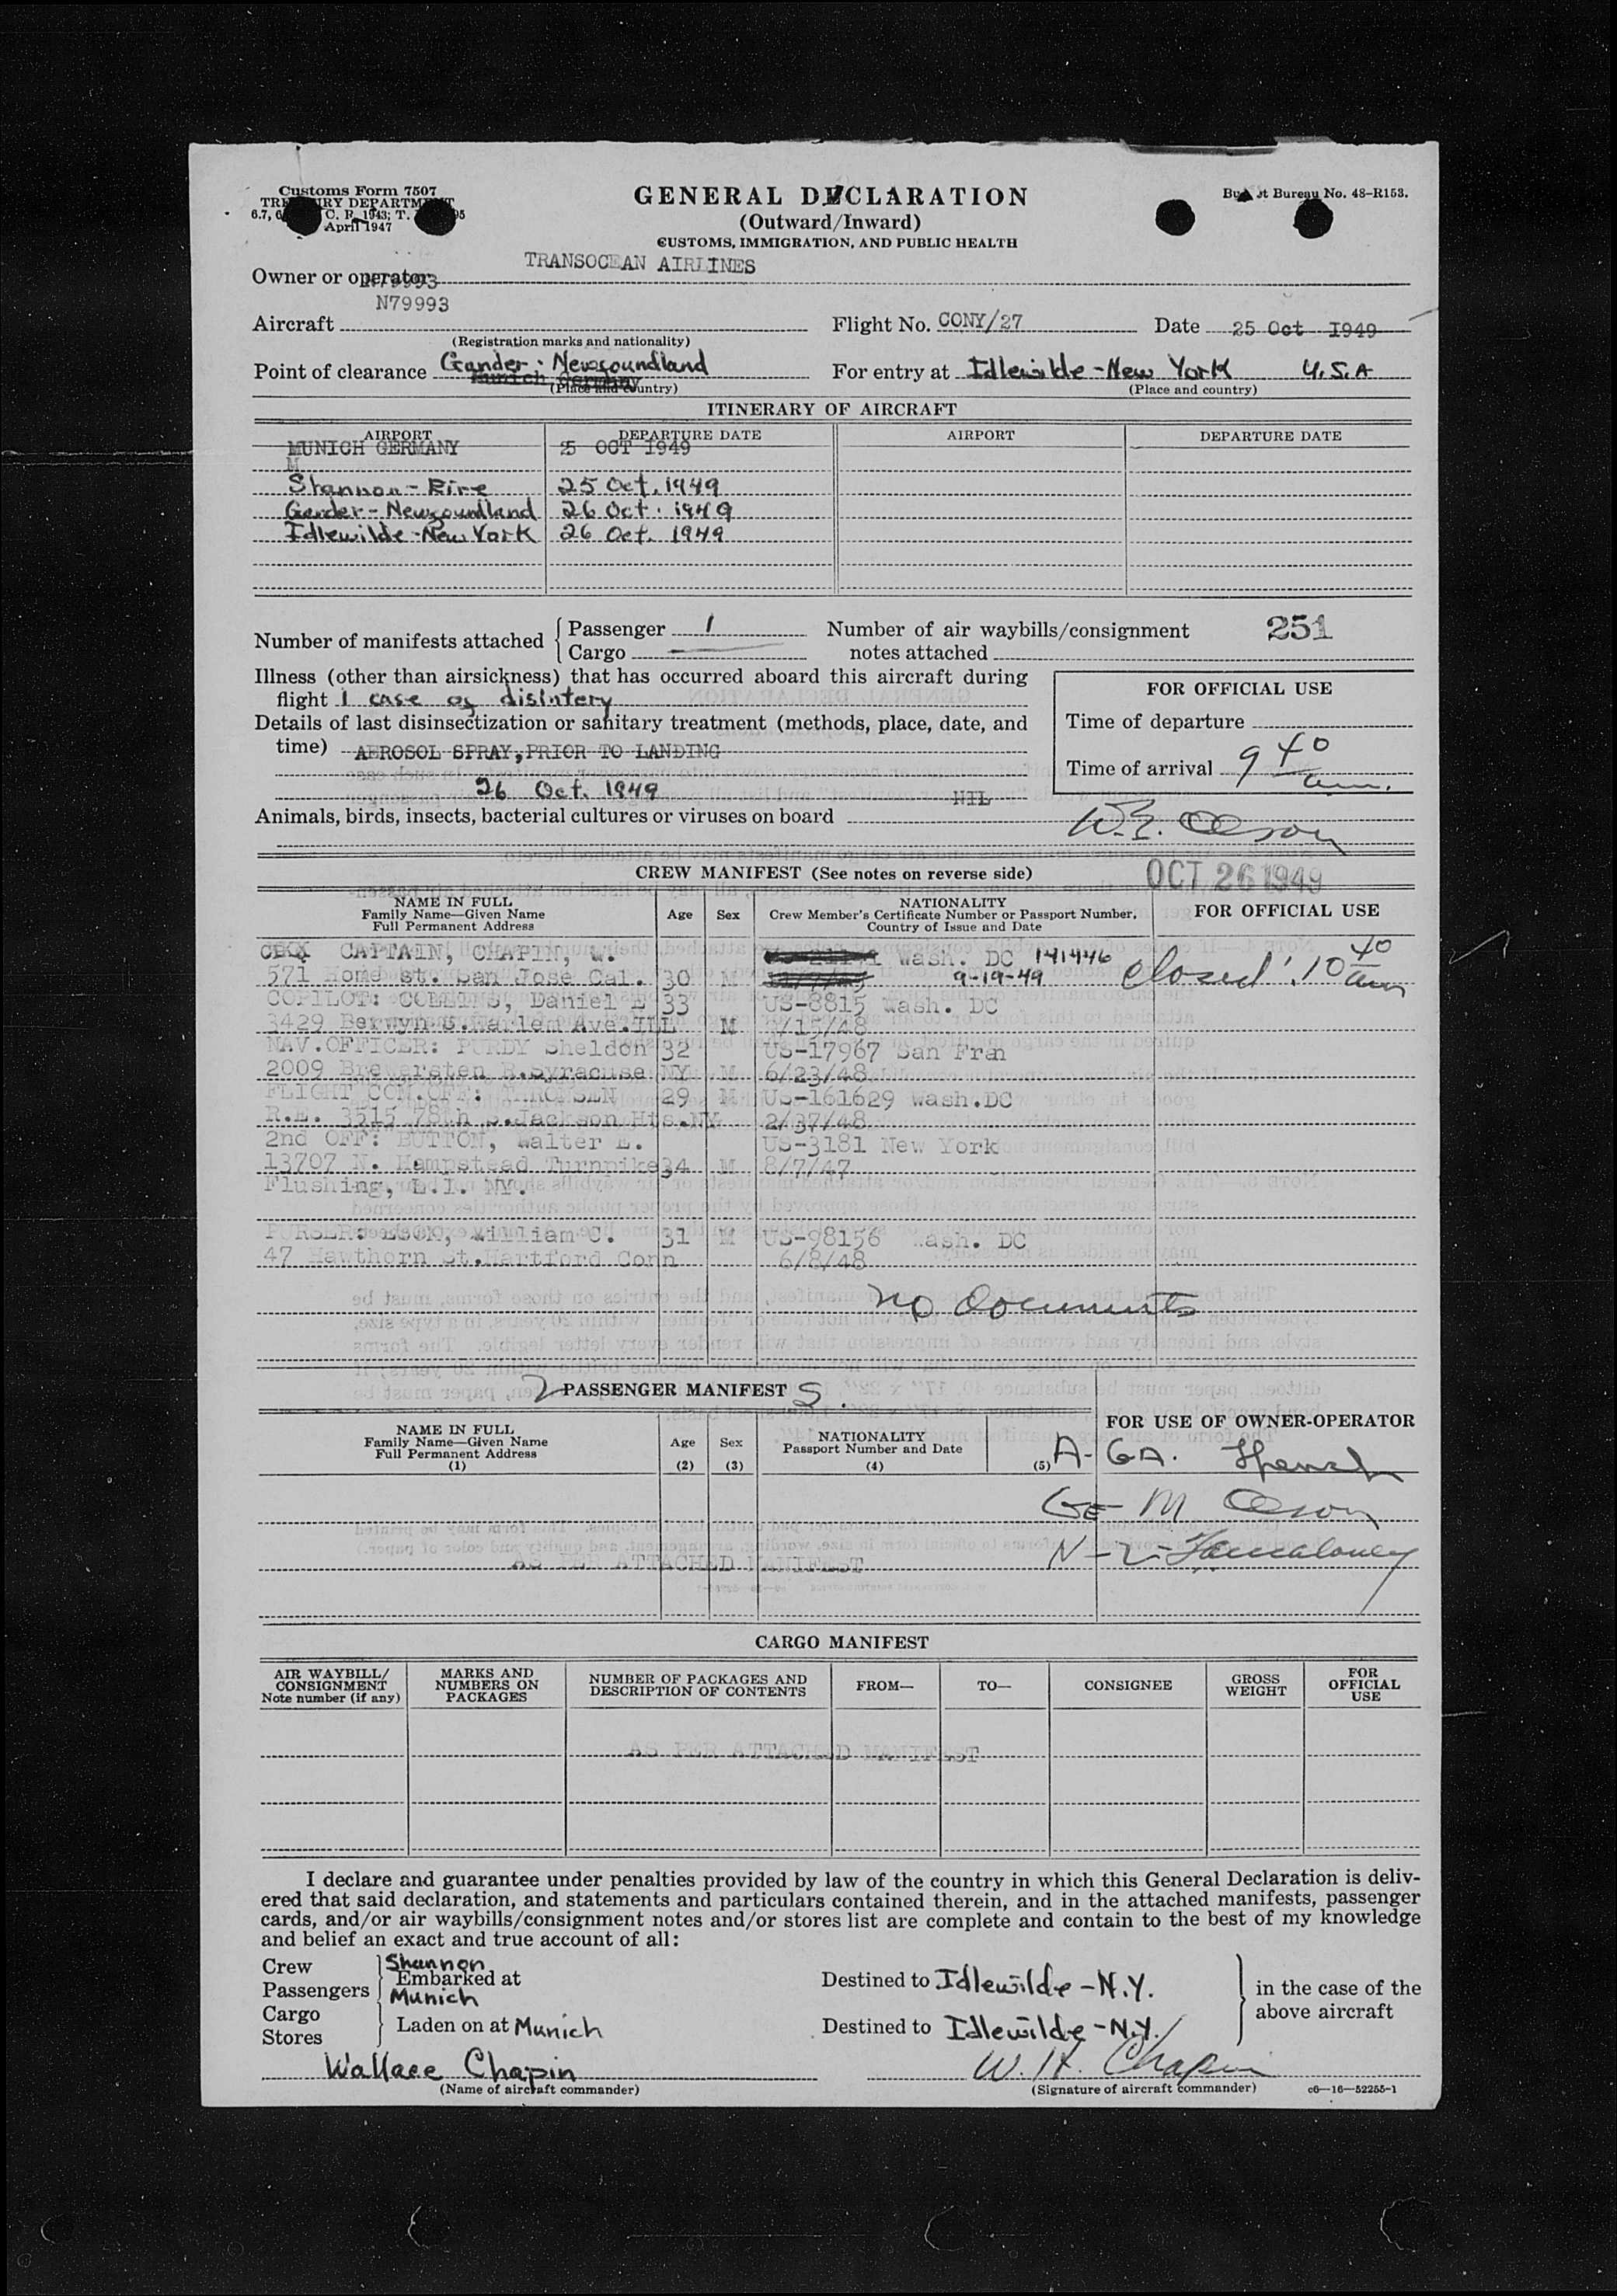 Customs Form 7507
GENERAL DECLARATION
(Outward/Inward)
CUSTOMS, IMMIGRATION, AND PUBLIC HEALTH
April 1947
No. 48-R153.
Owner or operator TRANSOCEAN AIRLINES
N79993
N79993
Aircraft
(Registration marks and nationality)
Flight No. CONY/27 Date 25 Oct 1949
Point of clearance Gander - Newfoundland
Munich Germany
(Place and country)
For entry at Idlewilde - New York U.S.A
(Place and country)
ITINERARY OF AIRCRAFT
AIRPORT DEPARTURE DATE AIRPORT DEPARTURE DATE
MUNICH GERMANY 25 OCT 1949
M
Shannon - Eire 25 Oct. 1949
Gander - Newfoundland 26 Oct. 1949
Idlewilde - New York 26 Oct. 1949
Number of manifests attached
Passenger 1
Cargo
Number of air waybills/consignment
notes attached
251
Illness (other than airsickness) that has occurred aboard this aircraft during
flight 1 case of disintery
Details of last disinsectization or sanitary treatment (methods, place, date, and
time) AEROSOL SPRAY, PRIOR TO LANDING
26 Oct. 1949
FOR OFFICIAL USE
Time of departure
Time of arrival 9 40 am.
Animals, birds, insects, bacterial cultures or viruses on board NIL
W.E. Olson
OCT 26 1949
CREW MANIFEST (See notes on reverse side)
NAME IN FULL
Family Name—Given Name
Full Permanent Address
Age
Sex
NATIONALITY
Crew Member's Certificate Number or Passport Number,
Country of Issue and Date
FOR OFFICIAL USE
CAPTAIN, CHAPIN, W. Wash. DC 141446
571 Home st. San Jose Cal. 30 M 9-19-49
closed: 10 40 am
COPILOT: Daniel E 33 US-8815 Wash. DC
3429 Berwyn S. Harlem Ave. ILL M /15/48
NAV.OFFICER: PURDY Sheldon 32 US-17967 San Fran
2009 R.Syracuse NY M 6/23/48
FLIGHT 29 M US-161629 Wash.DC
R.E. 3515 78th S.Jackson Hts.NY 2/37/48
2nd OFF: BUTTON, Walter E. US-3181 New York
13707 N. Hempstead Turnpike 34 M 8/7/47
Flushing, L.I. NY.
PURSER: William C. 31 M US-98156 Wash. DC
47 Hawthorn St.Hartford Conn 6/8/48
No documents
2 PASSENGER MANIFEST S.
NAME IN FULL
Family Name—Given Name
Full Permanent Address
(1)
Age
(2)
Sex
(3)
NATIONALITY
Passport Number and Date
(4)
(5)
FOR USE OF OWNER-OPERATOR
AS PER ATTACHED MANIFEST
CARGO MANIFEST
AIR WAYBILL/
CONSIGNMENT
Note number (if any)
MARKS AND
NUMBERS ON
PACKAGES
NUMBER OF PACKAGES AND
DESCRIPTION OF CONTENTS
FROM—
TO—
CONSIGNEE
GROSS
WEIGHT
FOR
OFFICIAL
USE
AS PER ATTACHED MANIFEST
I declare and guarantee under penalties provided by law of the country in which this General Declaration is deliv-
ered that said declaration, and statements and particulars contained therein, and in the attached manifests, passenger
cards, and/or air waybills/consignment notes and/or stores list are complete and contain to the best of my knowledge
and belief an exact and true account of all:
Crew
Passengers
Cargo
Stores
Shannon
Embarked at
Munich
Laden on at Munich
Destined to Idlewilde - N.Y.
Destined to Idlewilde - N.Y.
in the case of the
above aircraft
Wallace Chapin
(Name of aircraft commander)
W. H. Chapin
(Signature of aircraft commander)
c6—16—52255-1